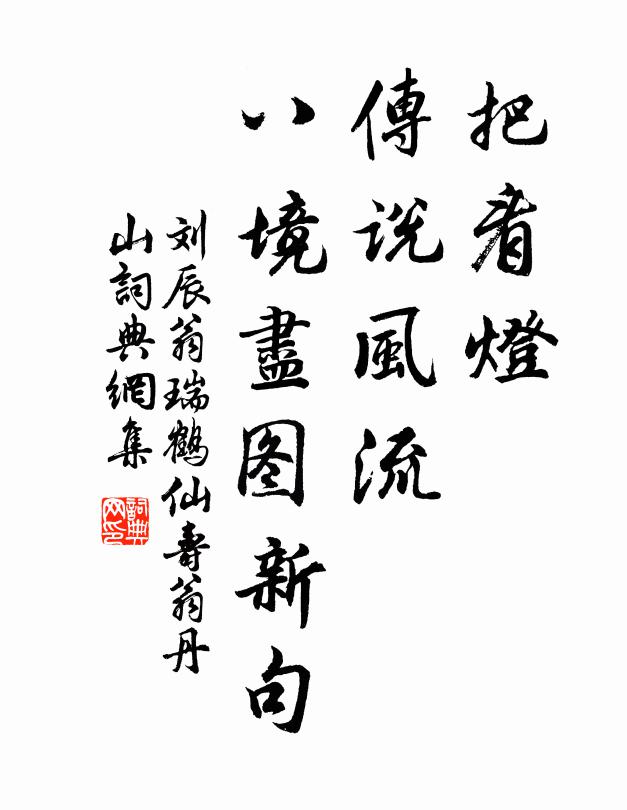 把看燈
傳説風流
八境盡图新句
刘辰翁瑞鶴仙壽翁丹
山詞典網集
詞典
网印